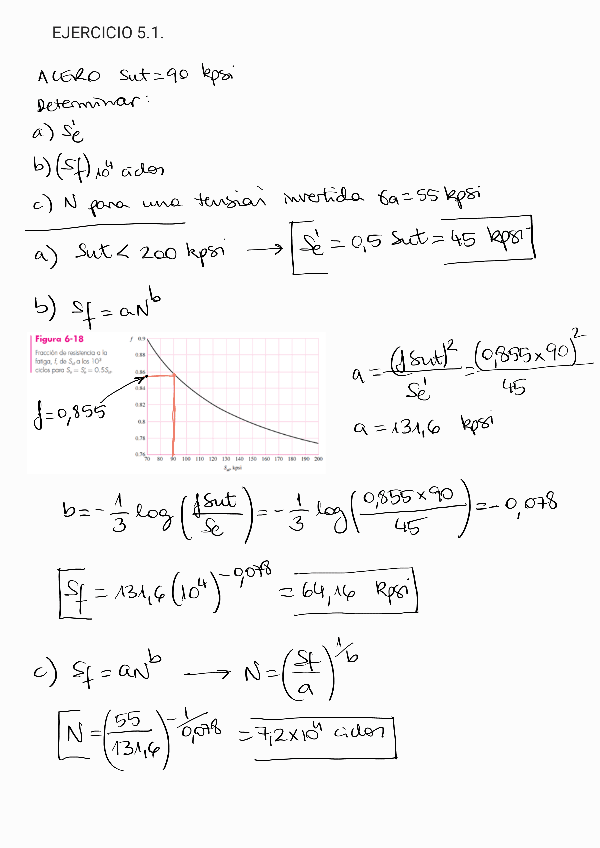 EJERCICIO 5.1.
ACERO Sut = 90 kpsi
Determinar:
a) Se'
b) (Sf)10⁴ ciclos
c) N para una tensión invertida σa = 55 kpsi
a) Sut < 200 kpsi → Se' = 0,5 Sut = 45 kpsi
b) Sf = aN^b
Figura 6-18
Fracción de resistencia a la
fatiga, f, de Sut a los 10³
ciclos para Se = S'e = 0.5Sut
f 0.9
0.88
0.86
0.84
0.82
0.8
0.78
0.76
70 80 90 100 110 120 130 140 150 160 170 180 190 200
Sut, kpsi
f = 0,855
a = (f Sut)² / Se' = (0,855 × 90)² / 45
a = 131,6 kpsi
b = - 1/3 log (f Sut / Se) = - 1/3 log (0,855 × 90 / 45) = - 0,078
Sf = 131,6 (10⁴)^-0,078 = 64,16 Kpsi
c) Sf = aN^b → N = (Sf / a)^1/b
N = (55 / 131,6)^-1/0,078 = 7,2 × 10⁴ ciclos